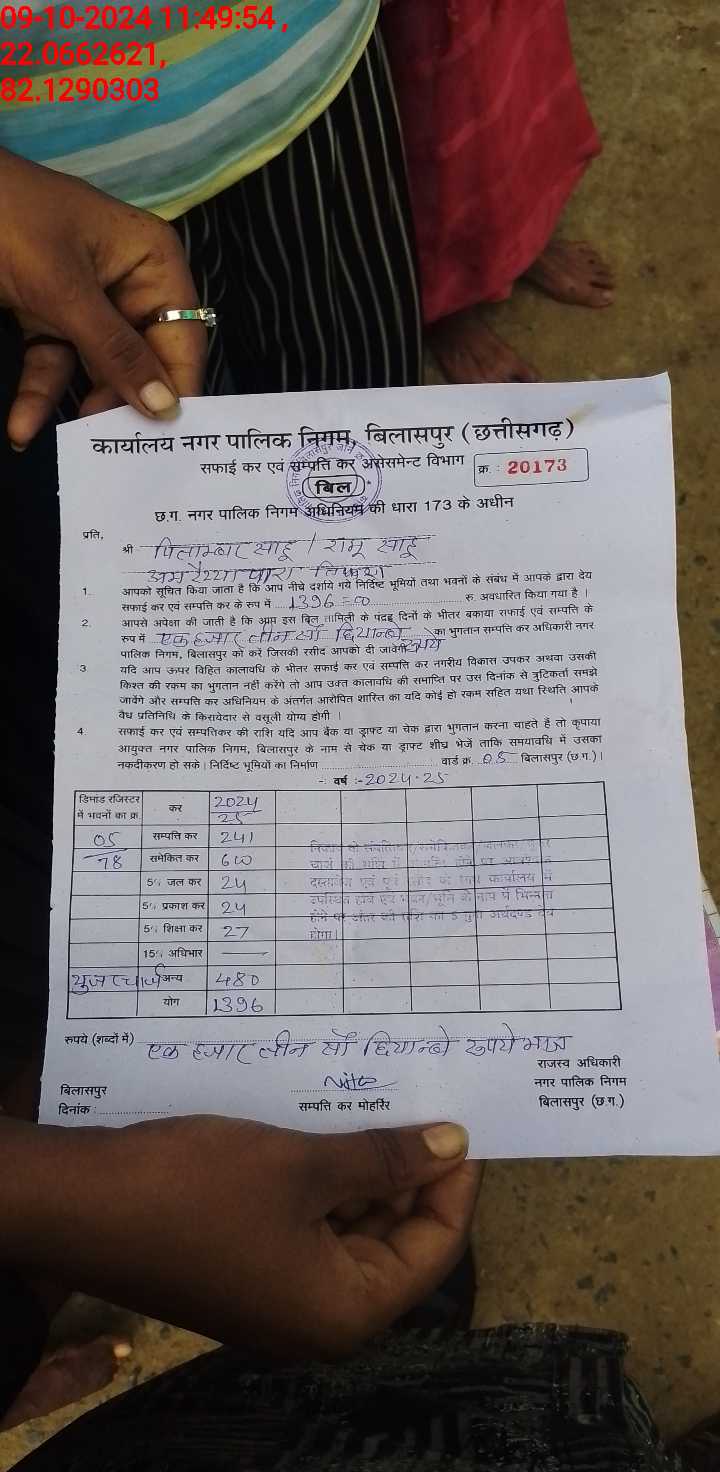 09-10-2024 11:49:54 ,
22.0662621,
82.1290303
कार्यालय नगर पालिक निगम, बिलासपुर (छत्तीसगढ़)
सफाई कर एवं सम्पत्ति कर असेसमेन्ट विभाग
क्र. : 20173
बिल
छ.ग. नगर पालिक निगम अधिनियम की धारा 173 के अधीन
प्रति,
श्री पिताम्बर साहू / रामू साहू
पारा तिफरा
1. आपको सूचित किया जाता है कि आप नीचे दर्शाये गये निर्दिष्ट भूमियों तथा भवनों के संबंध में आपके द्वारा देय
सफाई कर एवं सम्पत्ति कर के रुप में 1396=00 रु. अवधारित किया गया है ।
2. आपसे अपेक्षा की जाती है कि आप इस बिल तामिली के पंद्रह दिनों के भीतर बकाया सफाई एवं सम्पत्ति के
रुप में एक हजार तीन सौ छियान्बे रूपये का भुगतान सम्पत्ति कर अधिकारी नगर
पालिक निगम, बिलासपुर को करें जिसकी रसीद आपको दी जावेगी
3 यदि आप ऊपर विहित कालावधि के भीतर सफाई कर एवं सम्पत्ति कर नगरीय विकास उपकर अथवा उसकी
किश्त की रकम का भुगतान नहीं करेंगे तो आप उक्त कालावधि की समाप्ति पर उस दिनांक से त्रुटिकर्ता समझे
जावेंगे और सम्पत्ति कर अधिनियम के अंतर्गत आरोपित शास्ति का यदि कोई हो रकम सहित यथा स्थिति आपके
वैध प्रतिनिधि के किरायेदार से वसूली योग्य होगी ।
4. सफाई कर एवं सम्पत्तिकर की राशि यदि आप बैंक या ड्राफ्ट या चेक द्वारा भुगतान करना चाहते हैं तो कृपाया
आयुक्त नगर पालिक निगम, बिलासपुर के नाम से चेक या ड्राफ्ट शीघ्र भेजें ताकि समयावधि में उसका
नकदीकरण हो सके। निर्दिष्ट भूमियों का निर्माण वार्ड क्र. 05 बिलासपुर (छ.ग.)।
-: वर्ष :-2024-25
डिमांड रजिस्टर में भवनों का क्र. कर 2024 25
05 सम्पत्ति कर 241
78 समेकित कर 600
5% जल कर 24
5% प्रकाश कर 24
5% शिक्षा कर 27
15% अधिभार —
यूजर चार्ज अन्य 480
योग 1396
दस्तावेज एवं पूर्व रसीद के साथ कार्यालय में
उपस्थित होवें एवं भवन/भूमि के नाप में भिन्नता
होने पर अंतर की राशि का 5 गुना अर्थदण्ड देय
होगा।
रुपये (शब्दों में) एक हजार तीन सौ छियान्बे रूपये मात्र
राजस्व अधिकारी
नगर पालिक निगम
बिलासपुर (छ.ग.)
सम्पत्ति कर मोहर्रिर
बिलासपुर
दिनांक :